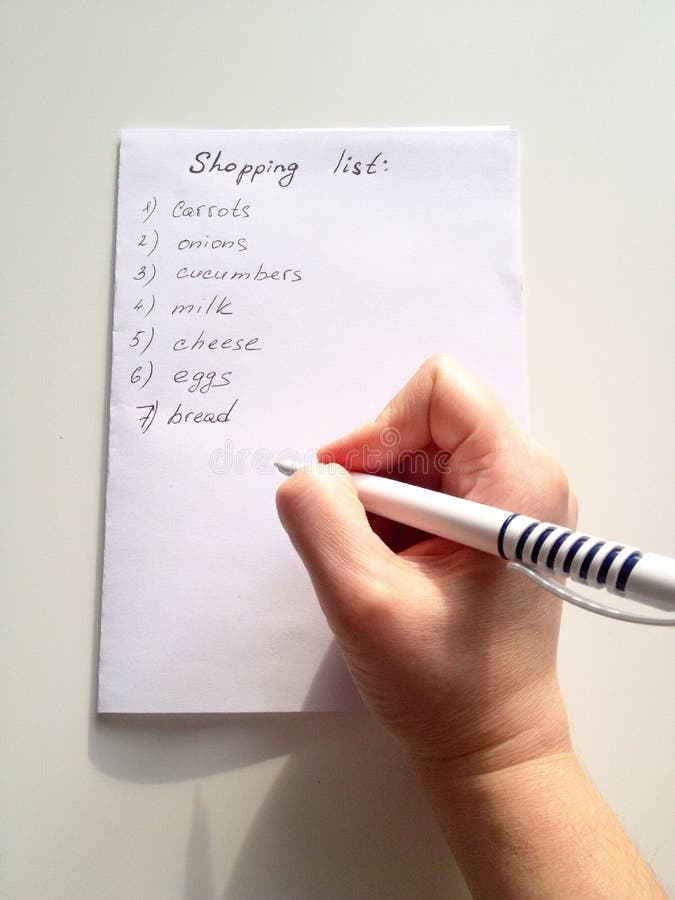 Shopping list:
1) carrots
2) onions
3) cucumbers
4) milk
5) cheese
6) eggs
7) bread
dreamstime.